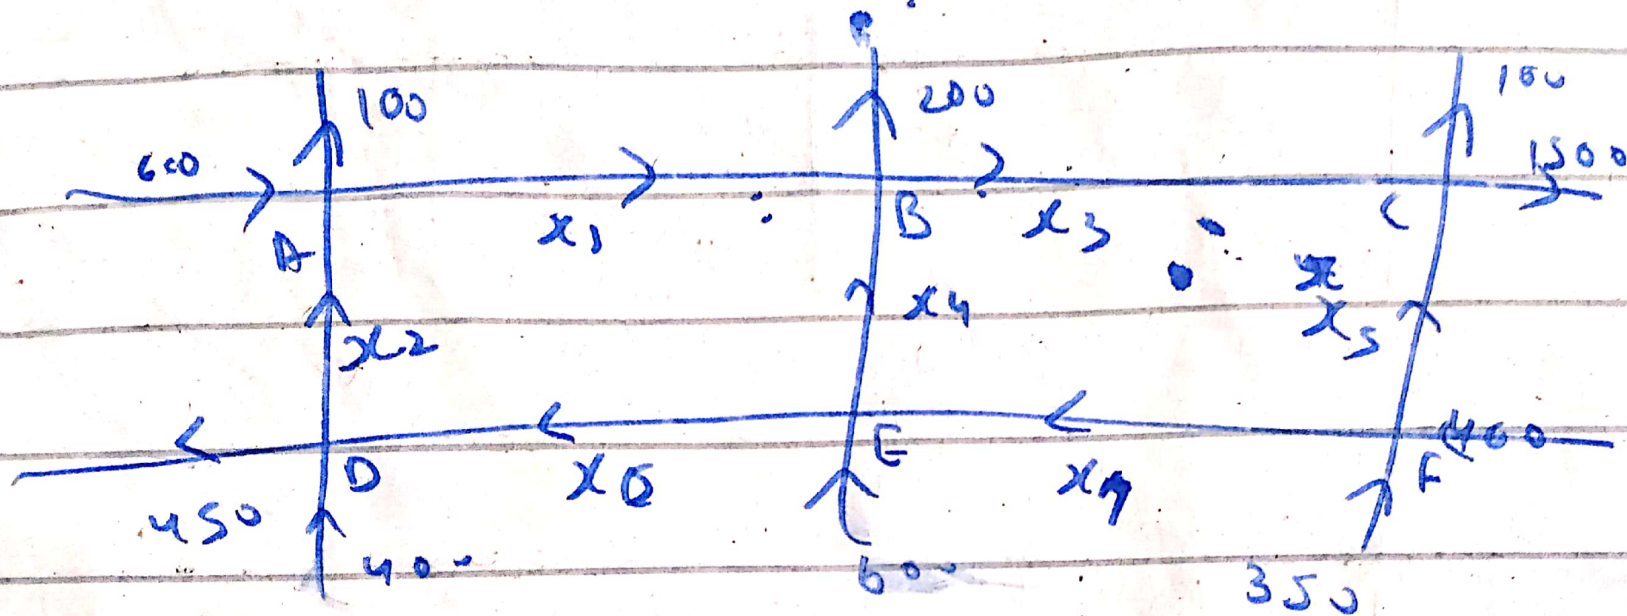 100 200 100
600 1500
A x₁ B x₃ C
x₂ x₄ x₅
D x₆ E x₇ F 400
450
400 600 350